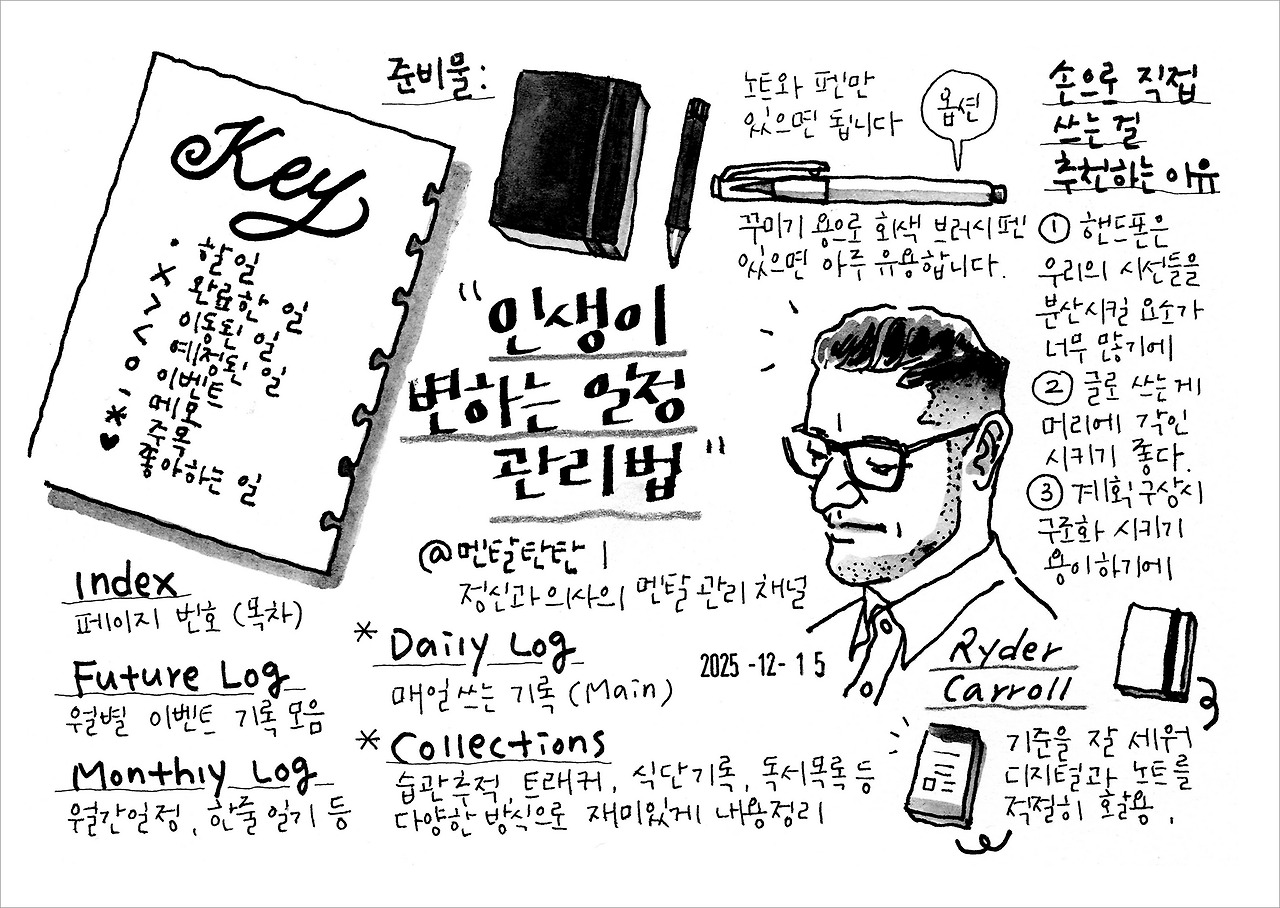 Key
• 할 일
x 완료한 일
> 이동된 일
< 예정된 일
o 이벤트
- 메모
* 주목
♥ 좋아하는 일
준비물:
노트와 펜만
있으면 됩니다
옵션
꾸미기 용으로 회색 브러시펜
있으면 아주 유용합니다.
손으로 직접
쓰는걸
추천하는 이유
① 핸드폰은
우리의 시선들을
분산시킬 요소가
너무 많기에
② 글로 쓰는게
머리에 각인
시키기 좋다.
③ 계획구상시
구조화 시키기
용이하기에
"인생이
변하는 일정
관리법"
@멘탈탄탄 |
정신과의사의 멘탈관리채널
Index
페이지 번호 (목차)
Future Log
월별 이벤트 기록모음
Monthly Log
월간일정, 한줄일기 등
* Daily Log
매일쓰는 기록 (Main)
2025-12-15
* Collections
습관추적, 트래커, 식단기록, 독서목록 등
다양한 방식으로 재미있게 내용정리
Ryder
Carroll
기준을 잘 세워
디지털과 노트를
적절히 활용.